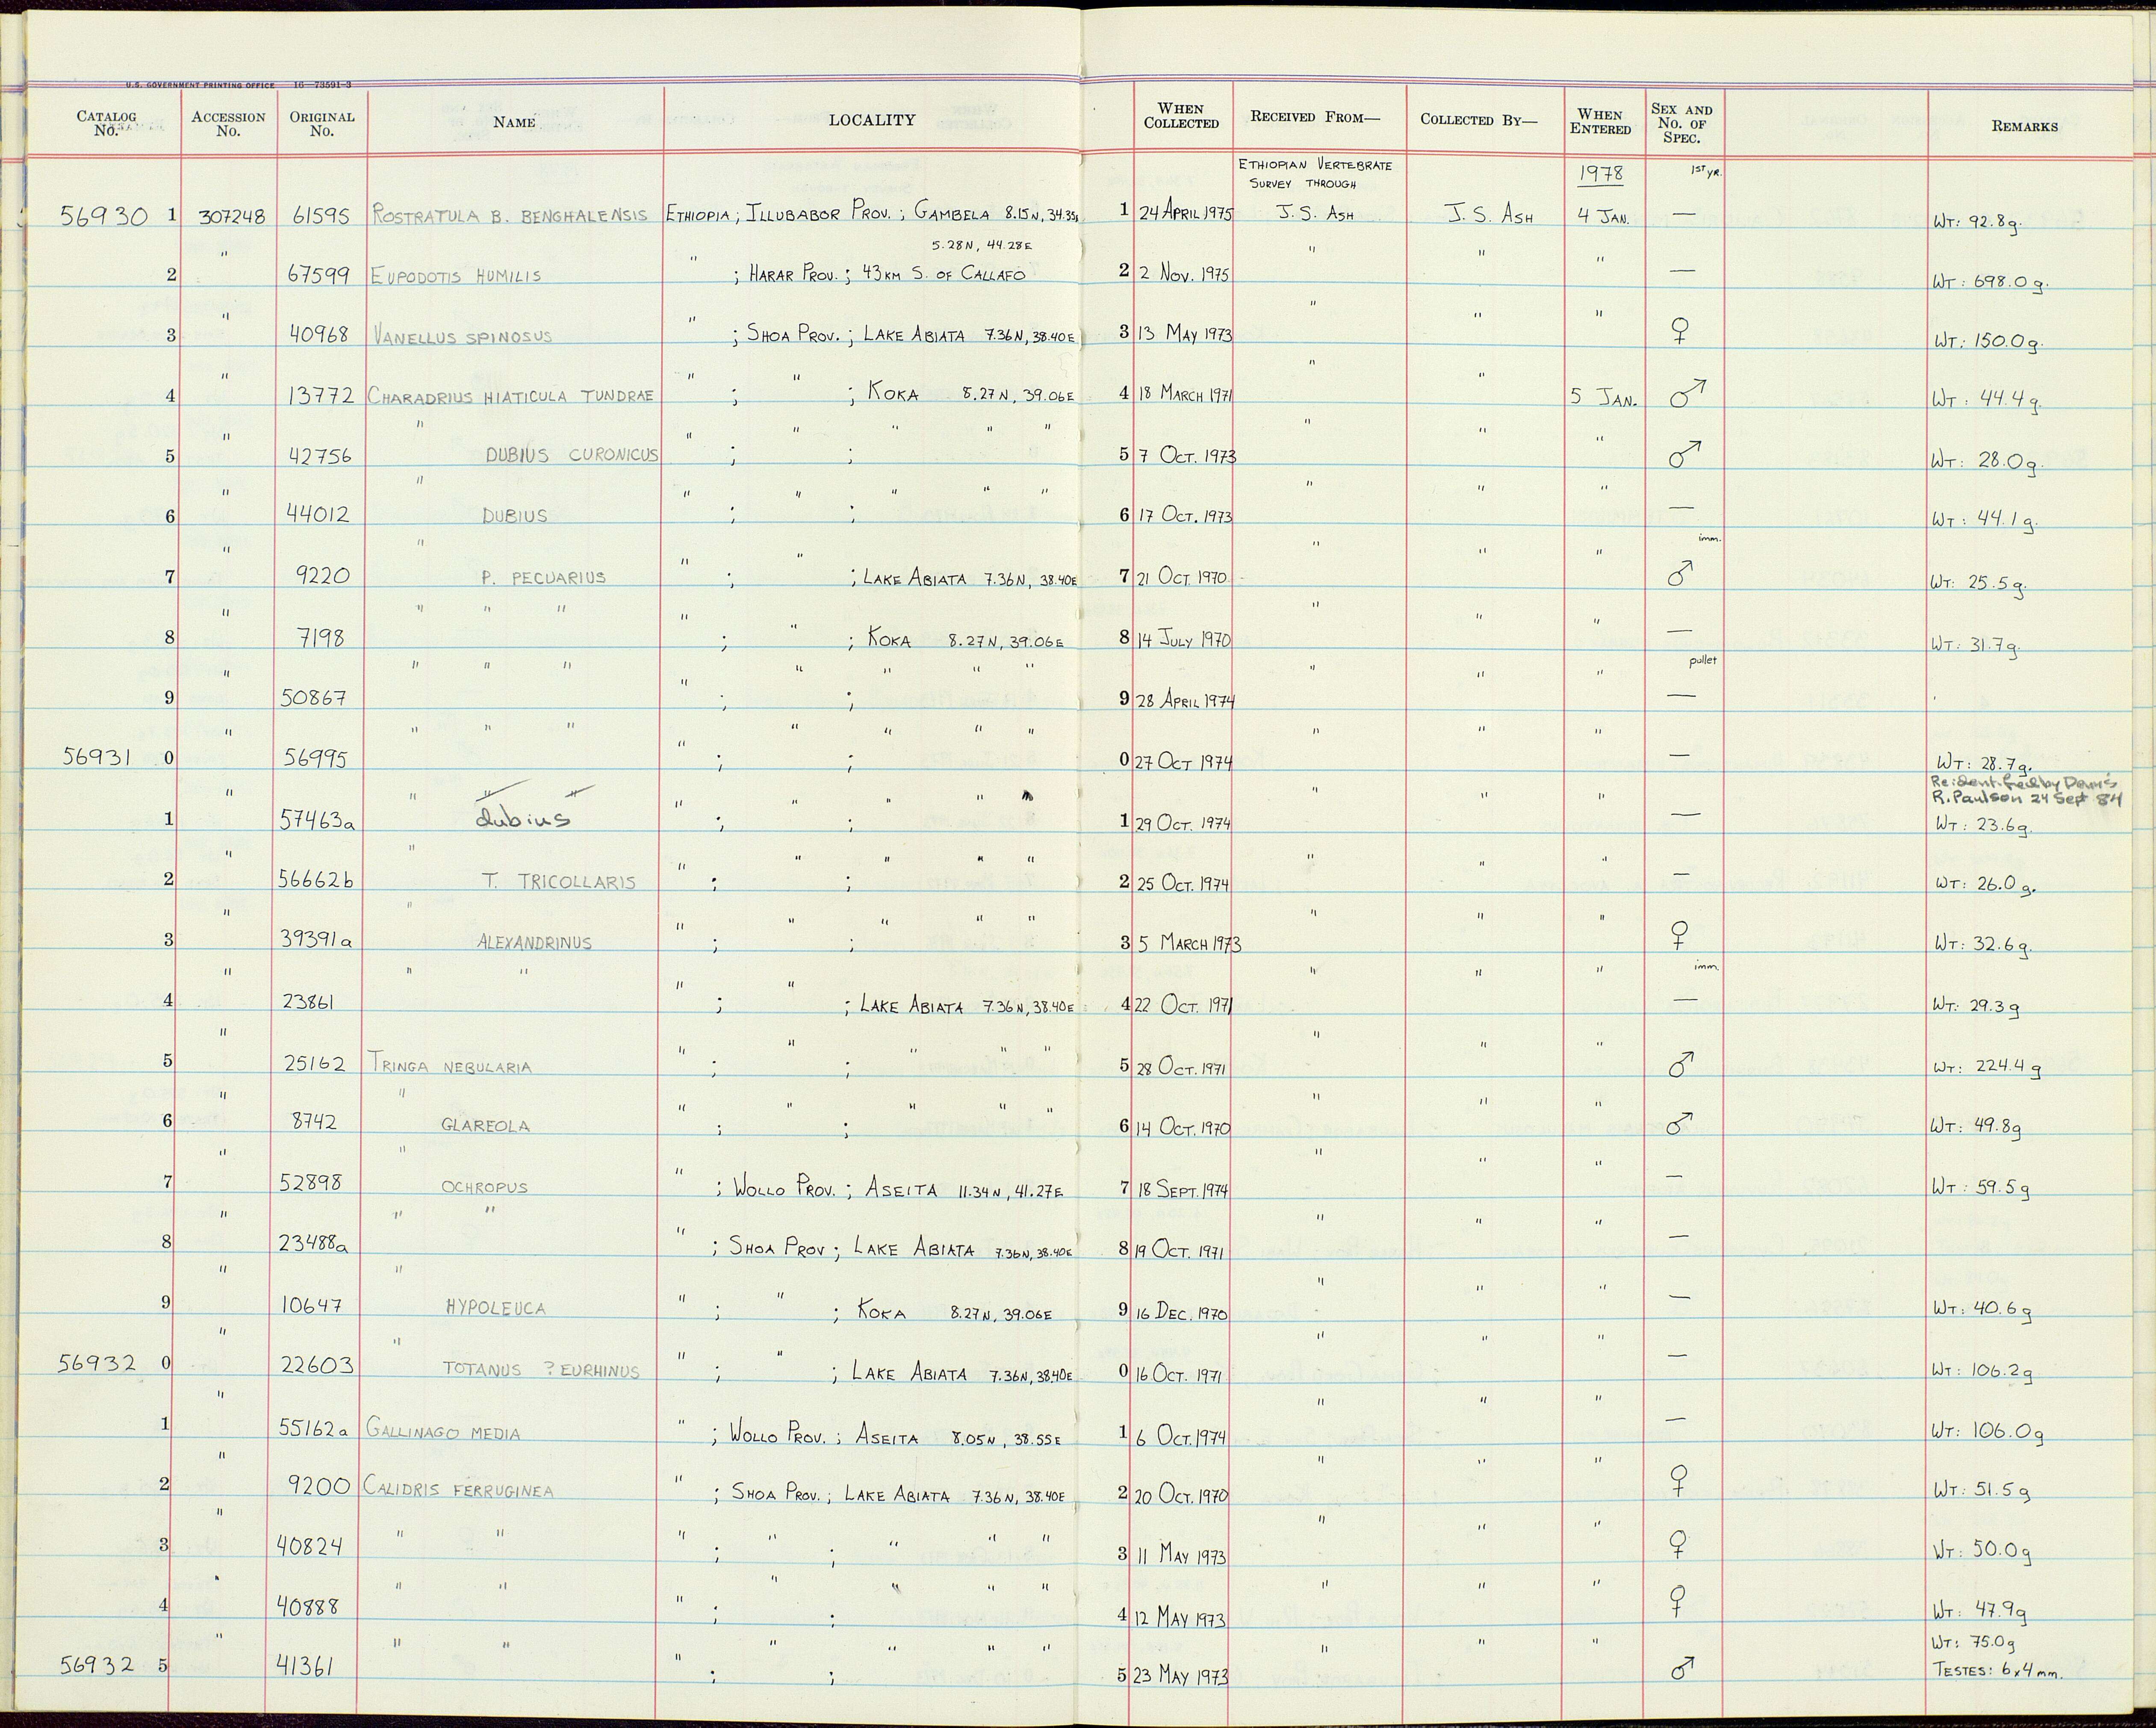 U.S. GOVERNMENT PRINTING OFFICE 16—73591-3
CATALOG No. ACCESSION No. ORIGINAL No. NAME LOCALITY WHEN COLLECTED RECEIVED FROM— COLLECTED BY— WHEN ENTERED SEX AND No. OF SPEC. REMARKS
ETHIOPIAN VERTEBRATE
SURVEY THROUGH 1978 1ST YR.
56930 1 307248 61595 ROSTRATULA B. BENGHALENSIS ETHIOPIA; ILLUBABOR PROV.; GAMBELA 8.15N, 34.35E 1 24 APRIL 1975 J.S. ASH J.S. ASH 4 JAN. — WT: 92.8g.
5.28N, 44.28E
2 " 67599 EUPODOTIS HUMILIS " ; HARAR PROV.; 43KM S. OF CALLAFO 2 2 NOV. 1975 " " " — WT: 698.0g.
3 " 40968 VANELLUS SPINOSUS " ; SHOA PROV.; LAKE ABIATA 7.36N, 38.40E 3 13 MAY 1973 " " " ♀ WT: 150.0g.
4 " 13772 CHARADRIUS HIATICULA TUNDRAE " ; " ; KOKA 8.27N, 39.06E 4 18 MARCH 1971 " " 5 JAN. ♂ WT: 44.4g.
5 " 42756 " DUBIUS CURONICUS " ; " ; " " " 5 7 OCT. 1973 " " " ♂ WT: 28.0g.
6 " 44012 " DUBIUS " ; " ; " " " 6 17 OCT. 1973 " " " — WT: 44.1g.
imm.
7 " 9220 " P. PECUARIUS " ; " ; LAKE ABIATA 7.36N, 38.40E 7 21 OCT. 1970 " " " ♂ WT: 25.5g.
8 " 7198 " " " " ; " ; KOKA 8.27N, 39.06E 8 14 JULY 1970 " " " — WT: 31.7g.
pullet
9 " 50867 " " " " ; " ; " " " 9 28 APRIL 1974 " " " —
56931 0 " 56995 " " " " ; " ; " " " 0 27 OCT 1974 " " " — WT: 28.7g.
Reidentified by Dennis
R. Paulson 24 Sept 84
1 " 57463a " " " dubius " ; " ; " " " 1 29 OCT. 1974 " " " — WT: 23.6g.
2 " 56662b " T. TRICOLLARIS " ; " ; " " " 2 25 OCT. 1974 " " " — WT: 26.0g.
3 " 39391a " ALEXANDRINUS " ; " ; " " " 3 5 MARCH 1973 " " " ♀ WT: 32.6g.
imm.
4 " 23861 " " " ; " ; LAKE ABIATA 7.36N, 38.40E 4 22 OCT. 1971 " " " — WT: 29.3g
5 " 25162 TRINGA NEBULARIA " ; " ; " " " 5 28 OCT. 1971 " " " ♂ WT: 224.4g
6 " 8742 " GLAREOLA " ; " ; " " " 6 14 OCT. 1970 " " " ♂ WT: 49.8g
7 " 52898 " OCHROPUS " ; WOLLO PROV.; ASEITA 11.34N, 41.27E 7 18 SEPT. 1974 " " " — WT: 59.5g
8 " 23488a " " " ; SHOA PROV; LAKE ABIATA 7.36N, 38.40E 8 19 OCT. 1971 " " " —
9 " 10647 " HYPOLEUCA " ; " ; KOKA 8.27N, 39.06E 9 16 DEC. 1970 " " " — WT: 40.6g
56932 0 " 22603 " TOTANUS ? EURHINUS " ; " ; LAKE ABIATA 7.36N, 38.40E 0 16 OCT. 1971 " " " — WT: 106.2g
1 " 55162a GALLINAGO MEDIA " ; WOLLO PROV.; ASEITA 8.05N, 38.55E 1 6 OCT. 1974 " " " — WT: 106.0g
2 " 9200 CALIDRIS FERRUGINEA " ; SHOA PROV.; LAKE ABIATA 7.36N, 38.40E 2 20 OCT. 1970 " " " ♀ WT: 51.5g
3 " 40824 " " " ; " ; " " " 3 11 MAY 1973 " " " ♀ WT: 50.0g
4 " 40888 " " " ; " ; " " " 4 12 MAY 1973 " " " ♀ WT: 47.9g
WT: 75.0g
56932 5 " 41361 " " " ; " ; " " " 5 23 MAY 1973 " " " ♂ TESTES: 6x4mm.